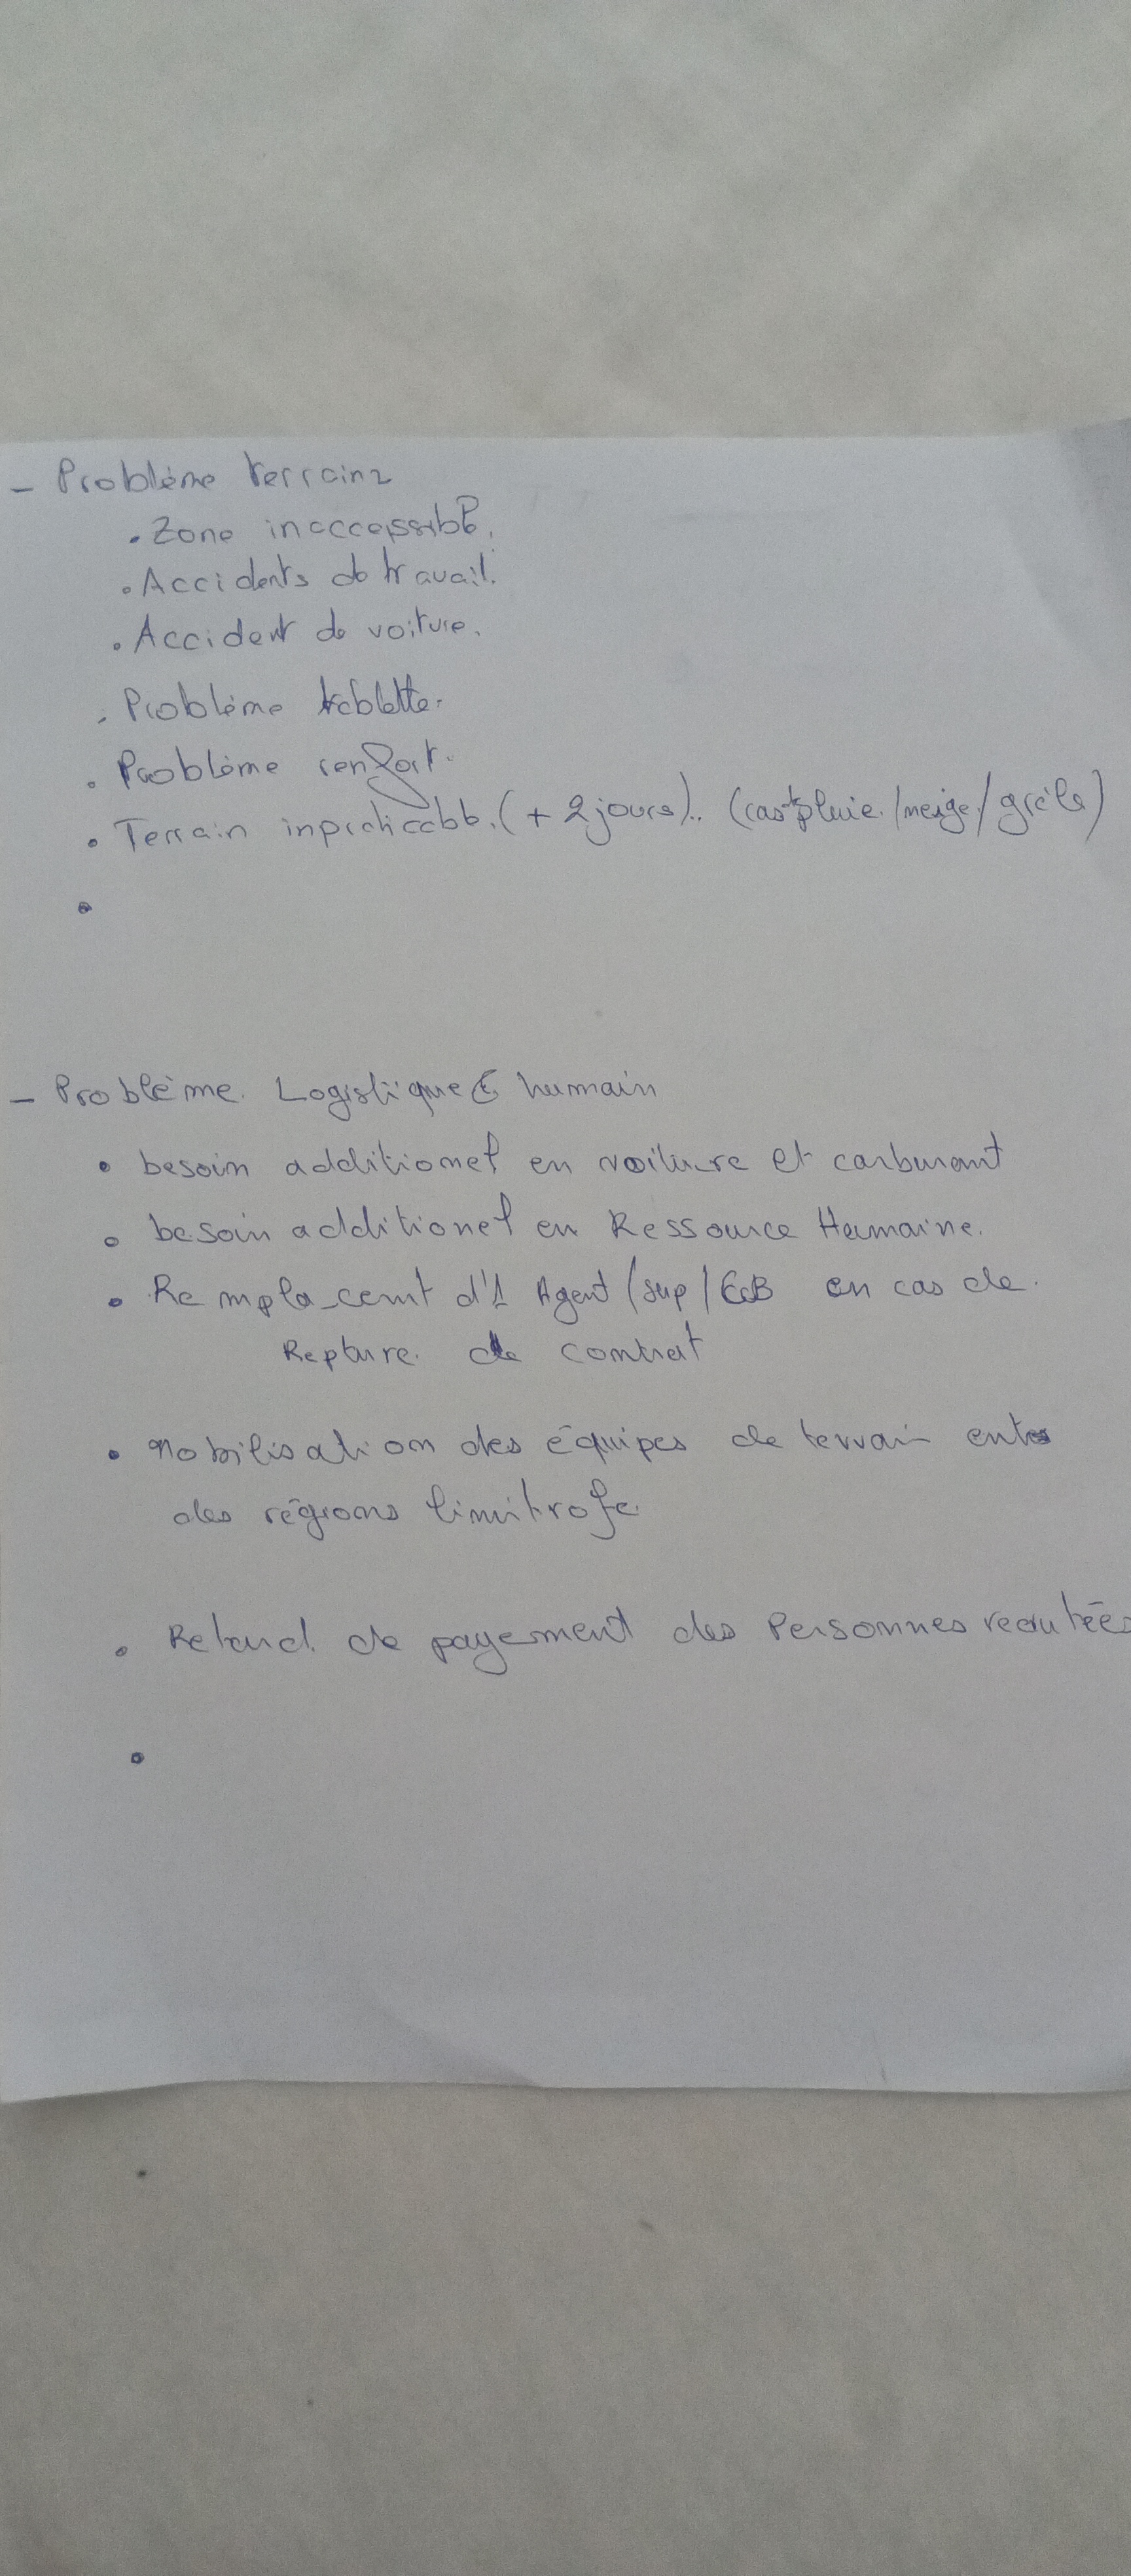 - Problème terrain
. Zone inaccessible.
. Accidents de travail.
. Accident de voiture.
. Problème tablette.
. Problème renfort.
. Terrain inpraticable. (+ 2 jours).. (cas pluie /neige/grêle)
- Problème. Logistique & humain
. besoin additionel en voiture et carburant
. besoin additionel en Ressource Humaine.
. Remplacemt d'1 Agent (sup/ en cas de.
Repture. de contrat
. Mobilisation des équipes de terrain entre
des régions limitrofe.
. Retard. de payement des Personnes recrutées